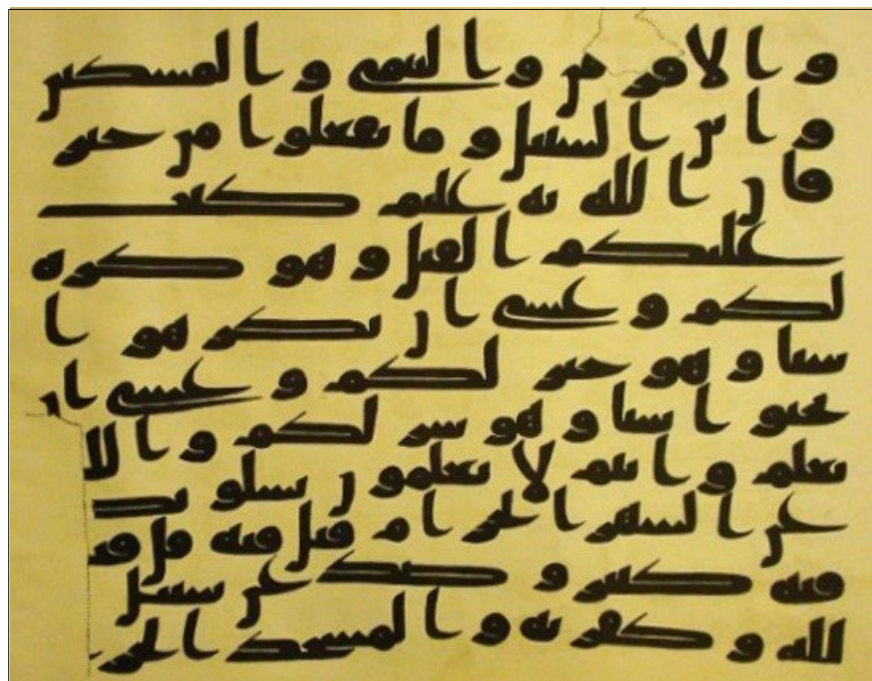 والاقربين واليتمى والمسكين
وابن السبيل وما تفعلوا من خير
فان الله به عليم كتب
عليكم القتل وهو كره
لكم وعسى ان تكرهوا
شيا وهو خير لكم وعسى ان
تحبوا شيا وهو شر لكم والله
يعلم وانتم لا تعلمون يسلونك
عن الشهر الحرام قتل فيه قل قتل
فيه كبير وصد عن سبيل
لله وكفر به والمسجد الحر